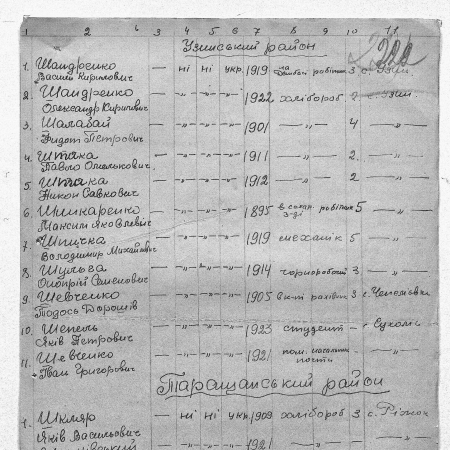 1 2 3 4 5 6 7 8 9 10 11
Узинський район
1. Шандренко — ні ні укр. 1919 робітник 3 с. Узин.
Василь Кирилович
2. Шандренко — „ — „ — „ — 1922 хлібороб 2 с. Узин.
Олександр Кирилович
3. Шалабай — „ — „ — „ — 1901 — „ — 4 — „ —
Федот Петрович
4. Штика — „ — „ — „ — 1911 — „ — 2. — „ —
Павло Омелькович.
5. Штика — „ — „ — „ — 1912 — „ — 2 — „ —
Никон Савкович
6. Шинкаренко — „ — „ — „ — 1895 в сахар. робітник 5 — „ —
Максим Яковлевич з-ді
7. Шпичка — „ — „ — „ — 1919 механік 5 — „ —
Володимир Михайлович
8. Шульга — „ — „ — „ — 1914 чорноробочий 3 — „ —
Семенович
9. Шевченко — „ — „ — „ — 1905 рахівник 3 с.
Тодось
10. Шепель — „ — „ — „ — 1923 студент —
Яків Петрович
11. Шевченко — „ — „ — „ — 1921 пом. — „ —
Григорович пошти
Таращанський район
1. Шкляр — ні ні укр. 1909 хлібороб 3 с.
Яків Васильович
— „ — „ — „ — 1921 — „ —